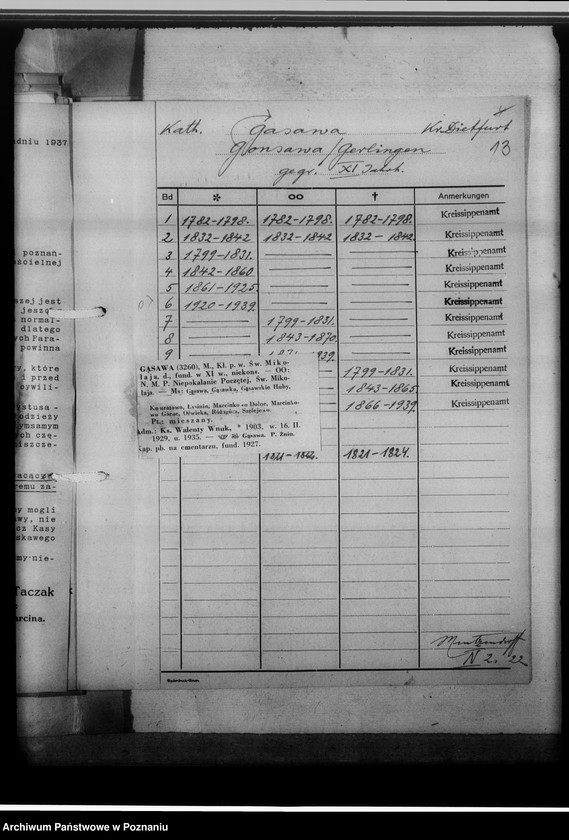 adniu 1937
poznań-
ościelnej
szej jest
jeszą"
normal-
dlatego
ych Para-
powinna
y, które
i przed
cywili-
stusa -
odzieży
ymsamym
ych czę-
niszcze-
racącym
emu za-
y mogli
wy, nie
cz Kasy
akawego
my nie-
Taczak
arcina.
Kath. Gąsawa Kr. Dietfurt
Gonsawa/Gerlingen 13
gegr. XI Jahrh.
Bd * ∞ † Anmerkungen
1 1782-1798. 1782-1798. 1782-1798. Kreissippenamt
2 1832-1842 1832-1842 1832-1842 Kreissippenamt
3 1799-1831. Kreissippenamt
4 1842-1860. Kreissippenamt
5 1861-1925. Kreissippenamt
6 1920-1939. Kreissippenamt
7 1799-1831. Kreissippenamt
8 1843-1870. Kreissippenamt
9 1871-1939. Kreissippenamt
1799-1831. Kreissippenamt
1843-1865 Kreissippenamt
1866-1939. Kreissippenamt
GĄSAWA (3260), M., Kł. p. w. Św. Miko-
łaja, d., fund. w XI w., niekons. — OO:
N. M. P. Niepokalanie Poczętej, Św. Miko-
łaja. — Mz: Gąsawa, Gąsawka, Gąsawskie Huby,
Pł.: mieszany.
Adm.: Ks. Walenty Wnuk, * 1903, w. 16. II.
1929, u. 1935. — Gąsawa. P. Żnin.
Kap. pb. na cmentarzu, fund. 1927.
1821-1824.
N 2. 22
Archiwum Państwowe w Poznaniu